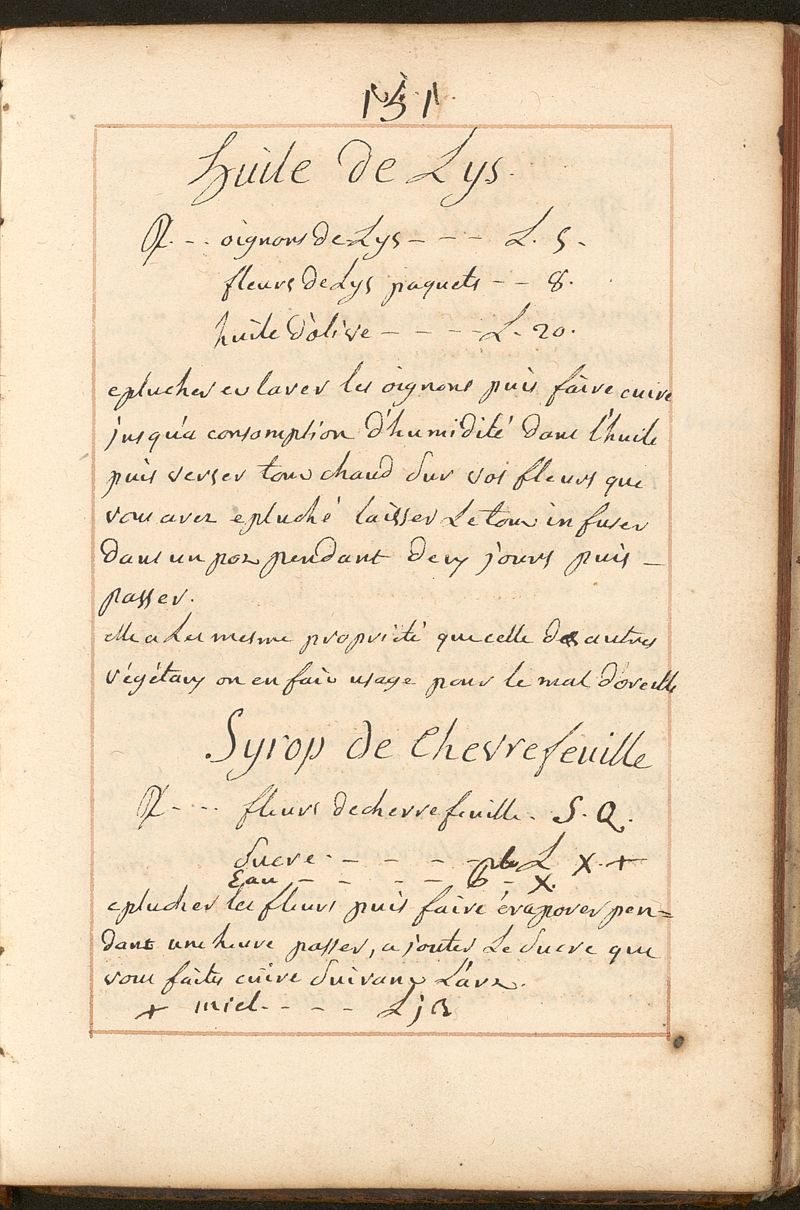 151
Huile de Lys.
℞. - - oignons de Lys - - - L. 5.
fleurs de Lys paquets - - 8.
huile d'olive - - - - L. 20.
eplucher et laver les oignons puis faire cuire
jusqu'a consomption d'humidité dans l'huile
puis verser tout chaud sur vos fleurs que
vous avez epluché laisser Le tout infuser
dans un pot pendant dix jours puis -
passer.
elle a Les mesme proprieté que celle des autres
végétaux on en fait usage pour le mal d'oreille
Syrop de Chevrefeuille
℞ - - - fleurs de chevrefeuille. S. Q.
Sucre - - - - L X. +
Eau - - - - - X.
eplucher les fleurs puis faire évaporer pen=
dant une heure passer, ajouter Le Sucre que
vous faites cuire Suivant L'art.
+ miel - - - - L j ß